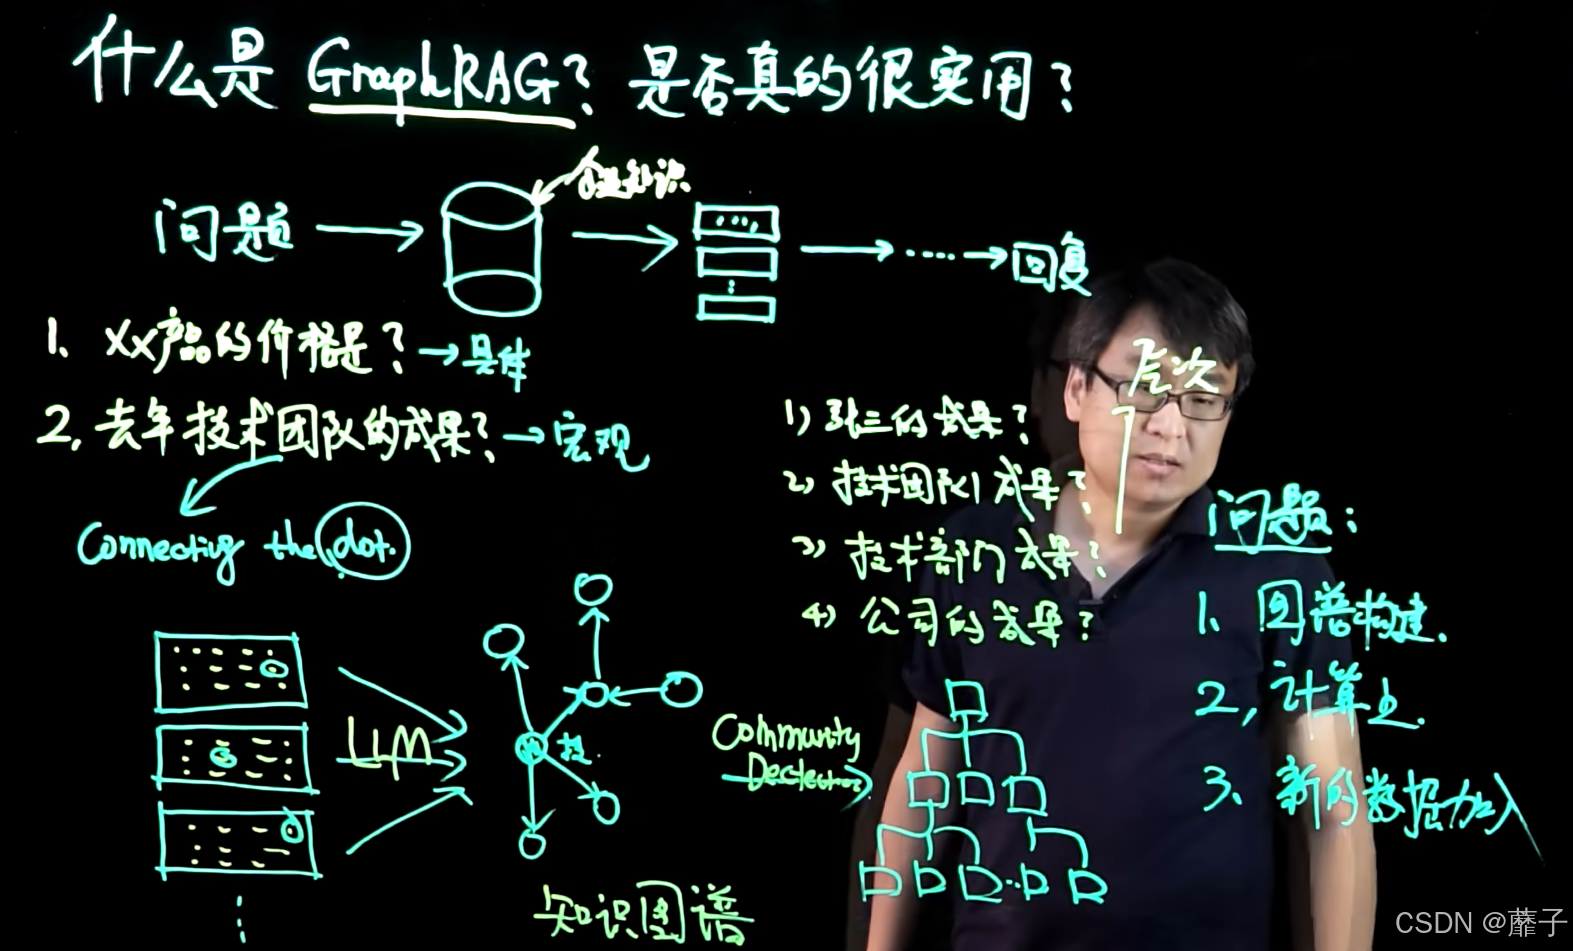 什么是 GraphRAG? 是否真的很实用?
企业知识
问题
回复
1、XX产品的价格是? → 具体
2, 去年技术团队的成果? → 宏观
Connecting the dot.
层次
1) 张三的成果?
2) 技术团队1 成果?
3) 技术部门 成果?
4) 公司的成果?
问题:
1、图谱构建.
2, 计算上.
3、新的数据加入
LLM
技.
Community
Detection
知识图谱
CSDN @蘼子